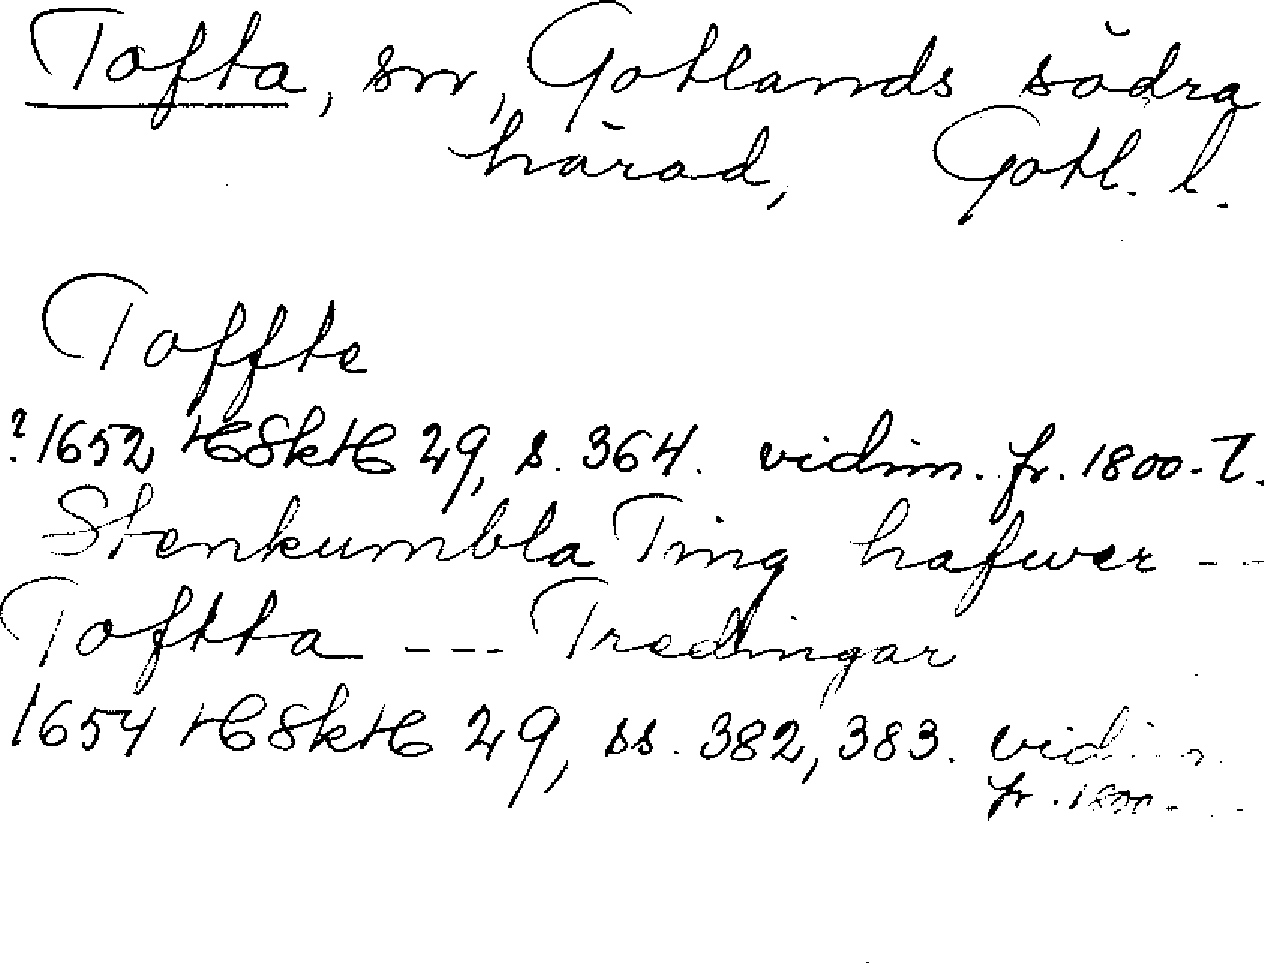 Tofta, sn, Gotlands södra
härad, Gotl. l.
Toffte
? 1652 HSkH 29, s. 364. vidim. fr. 1800-t.
Stenkumbla Ting hafwer --
Toftta --- Tredingar
1654 HSkH 29, ss. 382, 383. vidim.
fr. 1800-